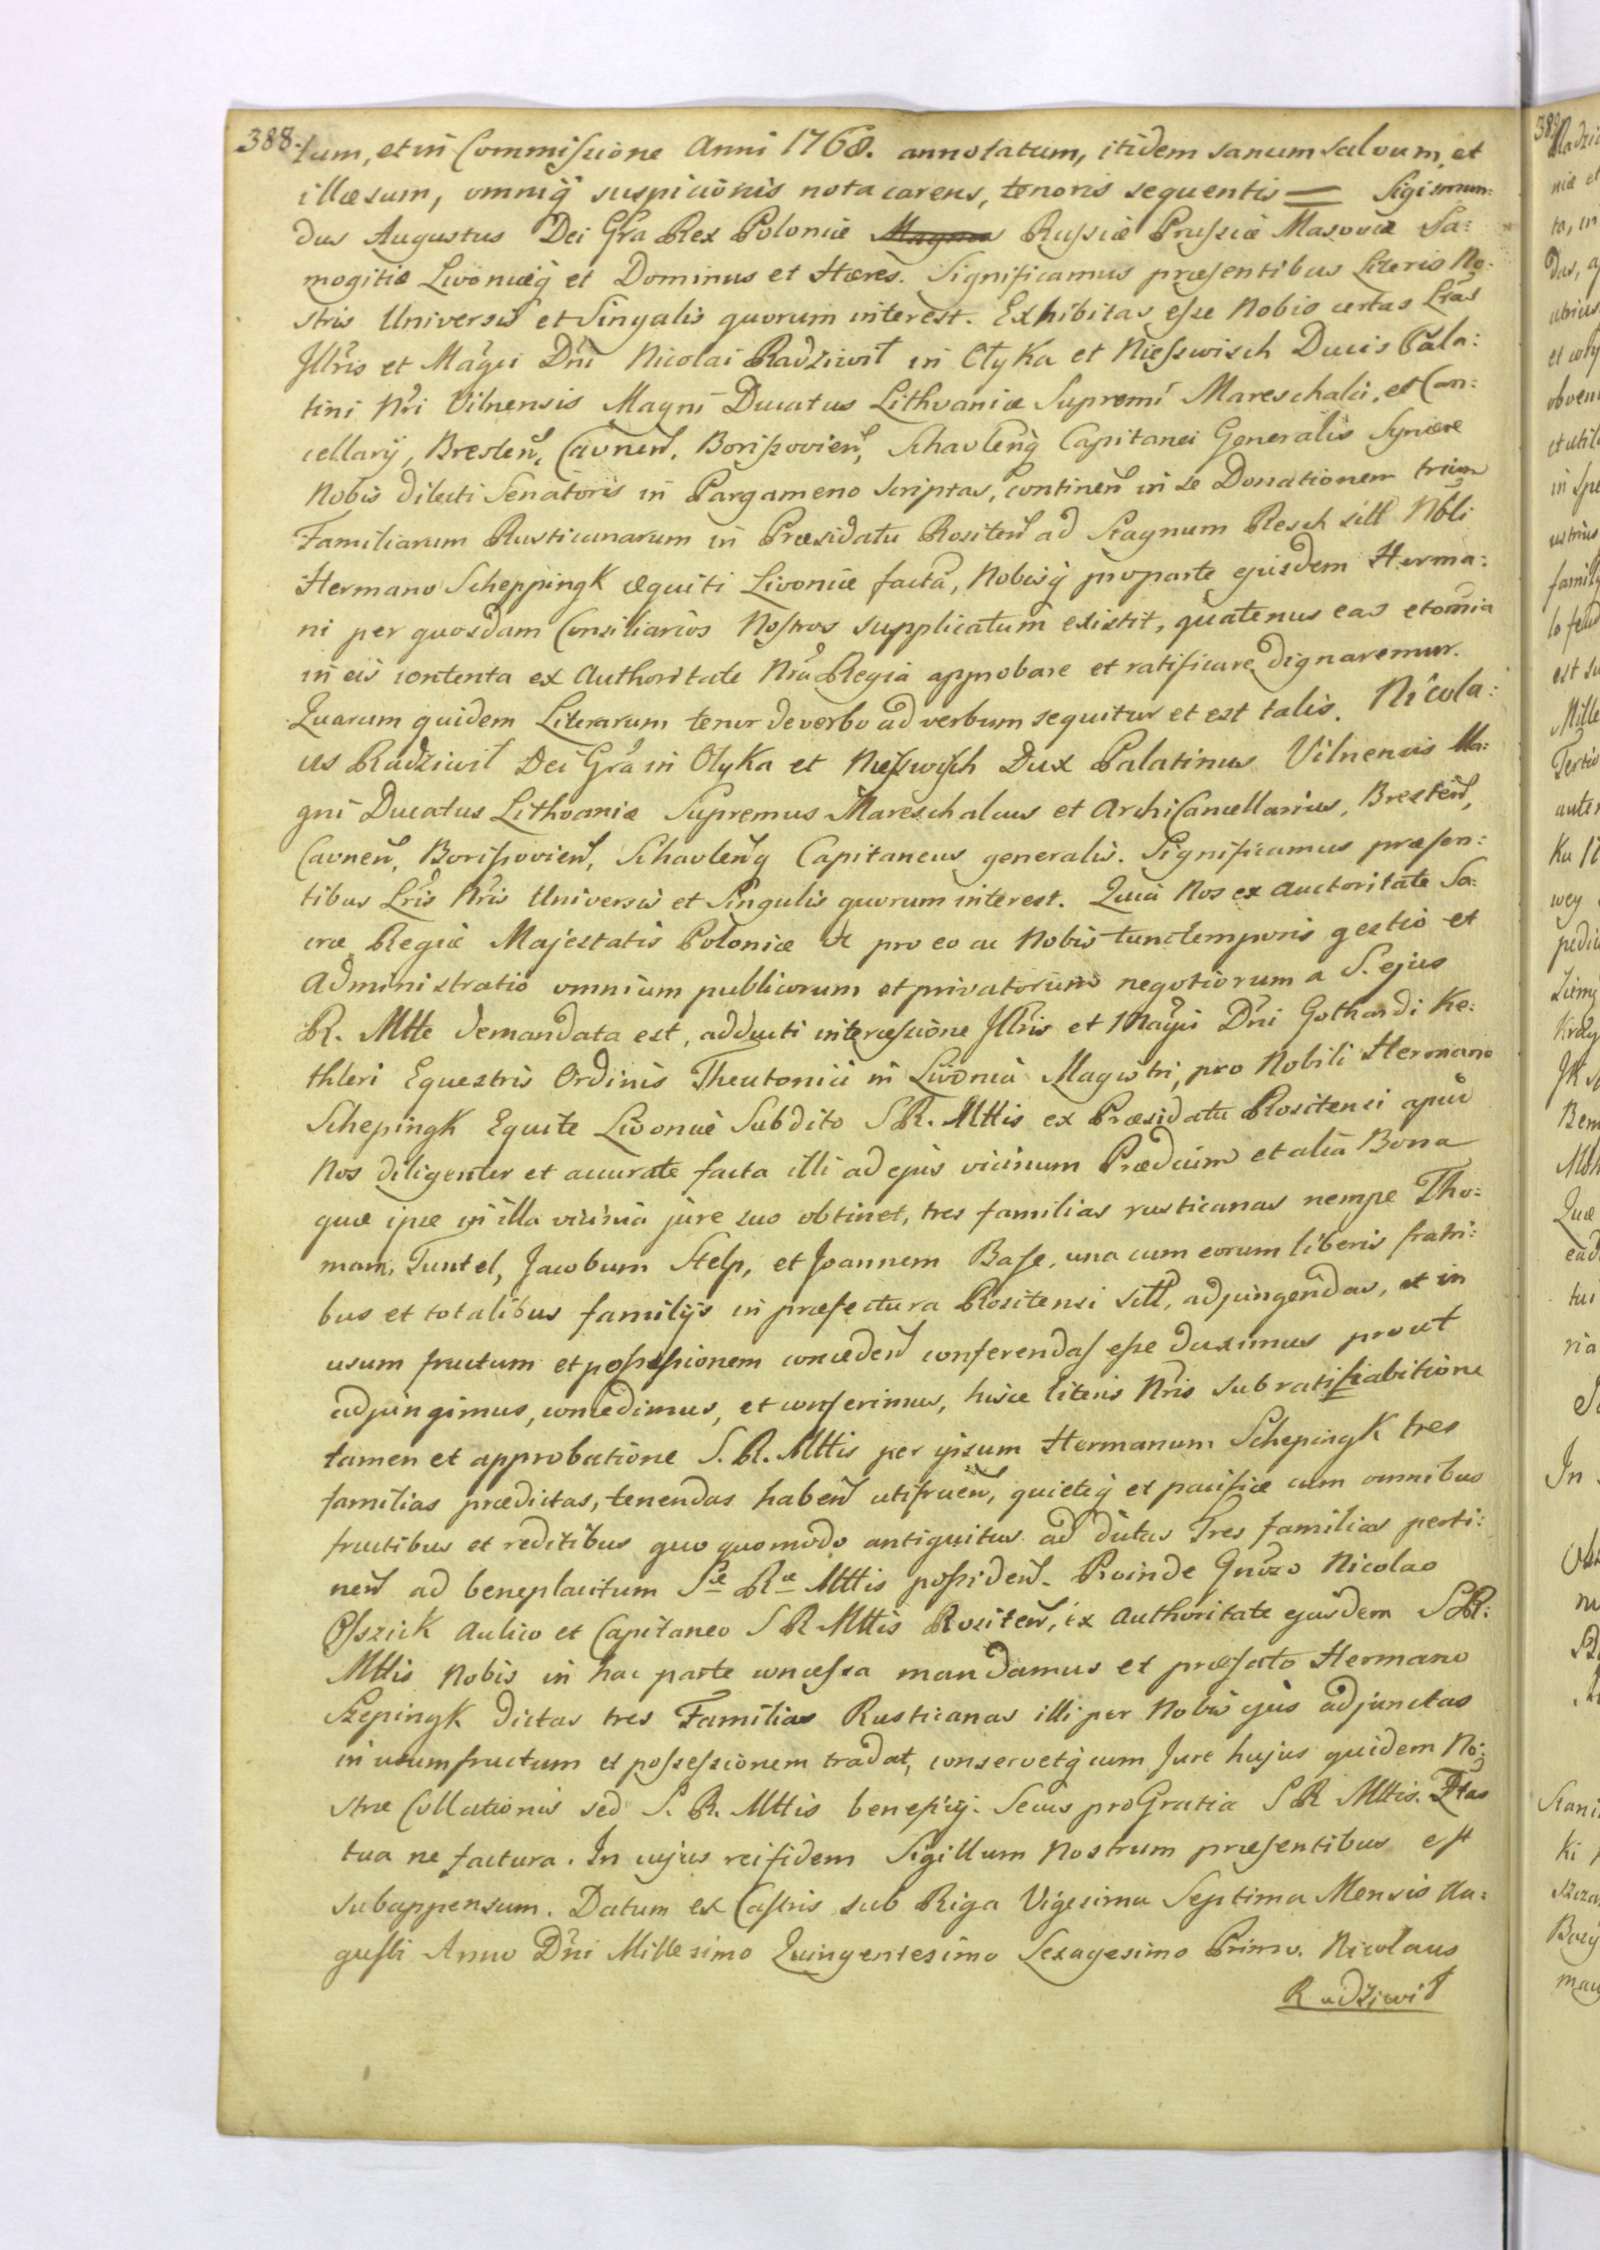 388.
tum, et in Commissione Anni 1768. annotatum, itidem sanum salvum, et
illæsum, omniq̃ suspicionis nota carens, tenoris sequentis = Sigismun:
dus Augustus Dei Gr̃a Rex Poloniæ Magnus Russiæ Prussiæ Masoviæ Sa:
mogitiæ Livoniæq̃ et Dominus et Hæres. Significamus præsentibus Literis No:
stris Universis et Singulis quorum interest. Exhibitas esse Nobis certas Lr̃as
Jllr̃is et Mag̃ci Dñi Nicolai Radziwil in Olyka et Niesswisch Ducis Pala:
tini Nr̃i Vilnensis Magni Ducatus Lithvaniæ Supremi Mareschalci, et Can:
cellarij, Bresteñ, Cavneñ, Borissovieñ, Schavleñq̃ Capitanei Generalis Syncere
Nobis dilecti Senatoris in Pargameno scriptas, contineñ in se Donationem trium
Familiarum Rusticanarum in Præsidatu Rositeñ ad Stagnum Resch sitt Nbli
Hermano Scheppingk æquiti Livoniæ factã, Nobisq̃ pro parte ejusdem Herma:
ni per quosdam Consiliarios Nostros supplicatum existit, quatenus eas et omnia
in eis contenta ex Authoritate Nr̃a Regia approbare et ratificare dignaremur.
Quarum quidem Literarum tenor de verbo ad verbum sequitur et est talis. Nicola:
us Radziwil Dei Gr̃a in Olyka et Niesswisch Dux Palatinus Vilnensis Ma:
gni Ducatus Lithvaniæ Supremus Mareschalcus et Archi Cancellarius, Bresteñ,
Cavneñ, Borissovieñ, Schavleñq̃ Capitaneus generalis. Significamus præsen:
tibus Lr̃is Nr̃is Universis et Singulis quorum interest. Quia Nos ex auctoritate Sa:
cræ Regiæ Majestatis Poloniæ &c pro eo ac Nobis tunc temporis gestio et
Administratio omnium publicorum et privatorum negotiorum a S. ejus
R. Mtte demandata est, adducti intercessione Jllr̃is et Mag̃ci Dñi Gothardi Ke:
thleri Equestris Ordinis Theutonici in Livonia Magistri, pro Nobili Hermano
Schepingk Equite Livoniæ Subdito S R. Mttis ex Præsidatu Rositensi apud
Nos diligenter et accurate facta illi ad ejus vicinum Prædium et alia Bona
quæ ipse in illa vicinia jure suo obtinet, tres familias rusticanas nempe Tho:
mam, Tuntel, Jacobum Stelp, et Joannem Base, una cum eorum liberis fratri:
bus et totalibus familijs in præfectura Rositensi sitt, adjungendas, et in
usum fructum et possessionem concedeñ conferendas esse duximus prout
adjungimus, concedimus, et conferimus, hisce literis Nr̃is sub ratifiabitione
tamen et approbatione S. R. Mttis per ipsum Hermanum Schepingk tres
familias prædictas, tenendas habeñ utifrueñ, quieteq̃ et pacifice cum omnibus
fructibus et reditibus quo quomodo antiquitus ad dictas Tres familias perti:
neñ ad beneplacitum Sæ Ræ Mttis possideñ. Proinde Gnr̃so Nicolao
Osszick Aulico et Capitaneo S R Mttis Rositeñ, ex Authoritate ejusdem S R:
Mttis Nobis in hac parte concessa mandamus et præfato Hermano
Szepingk dictas tres Familias Rusticanas illi per Nobis ejus adjunctas
in usumfructum et possessionem tradat, conservetq̃ cum Jure hujus quidem No:
stræ Collationis sed S. R. Mttis beneficij. Secus pro Gratia S R Mttis. Dtas
tua ne factura. In cujus rei fidem Sigillum Nostrum præsentibus est
subappensum. Datum ex Castris sub Riga Vigesima Septima Mensis Au:
gusti Anno Dñi Millesimo Quingentesimo Sexagesimo Primo. Nicolaus
Radziwil